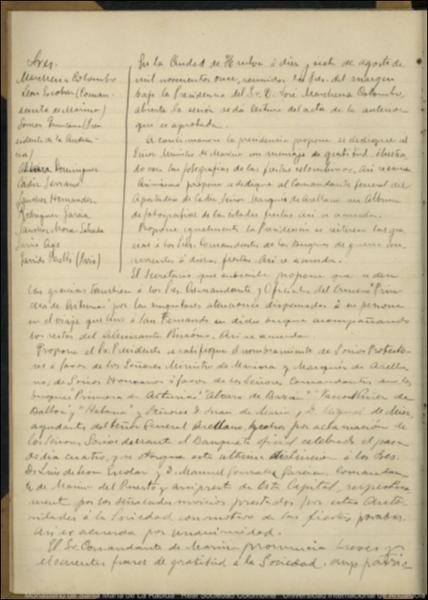 Sres.
Marchena Colombo
(Coman-
dante de Marina)
(Pre-
sidente de la Audien-
cia)
Dominguez
Cádiz Serrano
Hernandez
Rodriguez Garcia
Mora
Garrido Perelló (Srio)
En la Ciudad de Huelva á diez y siete de agosto de
mil novecientos once, reunidos los Sres. del margen
bajo la Presidencia del Sr. D. José Marchena Colombo,
abierta la sesión se dá lectura del acta de la anterior
que es aprobada.
A continuacion la presidencia propone se dedique al
Señor Ministro de Marina un mensaje de gratitud
con las fotografias de las fiestas colombinas. Asi se acuerda
Asimismo propone se dedique al Comandante General del
Apostadero de Cádiz Señor Marqués de Arellano un Album
de fotografias de las citadas fiestas. Asi se acuerda.
Propone igualmente la Presidencia se reiteren las gra-
cias á los Sres. Comandantes de los buques de guerra con-
currentes á dichas fiestas. Asi se acuerda.
El Secretario que suscribe propone que se den
las gracias tambien á los Sres. Comandante y Oficiales del Crucero "Prin-
cesa de Asturias" por las singulares atenciones dispensadas á su persona
en el viaje que hizo á San Fernando en dicho buque acompañando
los restos del Pinzón. Asi se acuerda.
Propone el Sr. Presidente se ratifique el nombramiento de Socios Protecto-
res á favor de los Señores Ministro de Marina y Marqués de Arella-
no; de Socios Honorarios á favor de los Señores Comandantes de los
buques "Princesa de Asturias" "Alvaro de Bazán" "Vasco Nuñez de
Balboa", "Habana" y Señores D. Juan de Maria y D. Miguel de Mier,
ayudantes del Señor General Arellano, hechos por aclamación de
los Señores Socios durante el Banquete oficial celebrado el pasado
dia cuatro, que otorgua esta última distincion á los Sres.
D. Luis de Leon Escobar y D. Manuel Gonzalez Comandan-
te de Marina del Puerto y de esta Capital, respectiva-
mente por los señalados servicios prestados por estas Auto-
ridades á la Sociedad con motivo de las fiestas pasadas.
Asi se acuerda por unanimidad.
El Sr. Comandante de Marina pronuncia breves y
elocuentes frases de gratitud á la Sociedad, cuyo patrio-